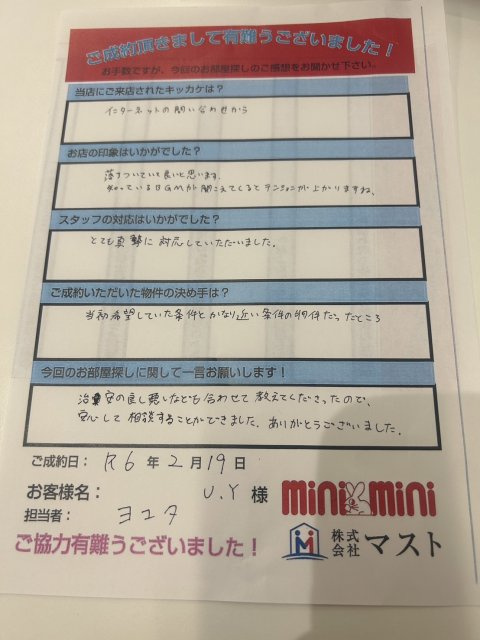 ご成約頂きまして有難うございました！
お手数ですが、今回のお部屋探しのご感想をお聞かせ下さい。
当店にご来店されたキッカケは？
インターネットの問い合わせから
お店の印象はいかがでした？
落ちついていて良いと思います。
知っているBGMが聞こえてくるとテンションが上がりますね。
スタッフの対応はいかがでした？
とても真摯に対応していただいました。
ご成約いただいた物件の決め手は？
当初希望していた条件とかなり近い条件の物件だったところ
今回のお部屋探しに関して一言お願いします！
治安の良し悪しなども合わせて教えてくださったので、
安心して相談することができました。ありがとうございました。
ご成約日： R6 年 2 月 19 日
お客様名： U.Y 様
担当者： ヨコタ
mini mini
ご協力有難うございました！
株式会社 マスト